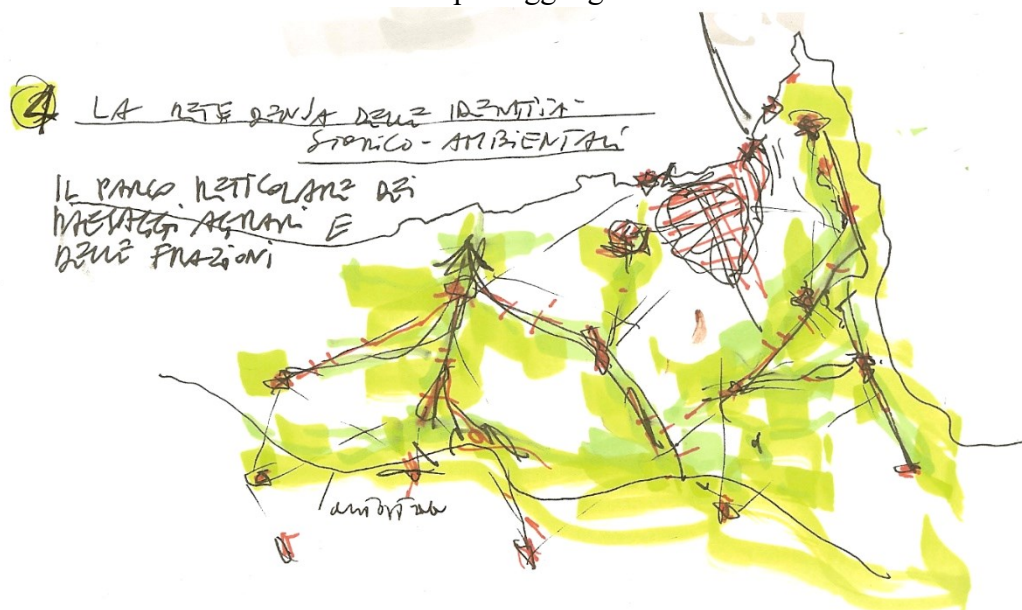 4 LA RETE DENSA DELLE IDENTITÀ
STORICO-AMBIENTALI
IL PARCO RETICOLARE DEI
PAESAGGI AGRARI E
DELLE FRAZIONI
autostrada